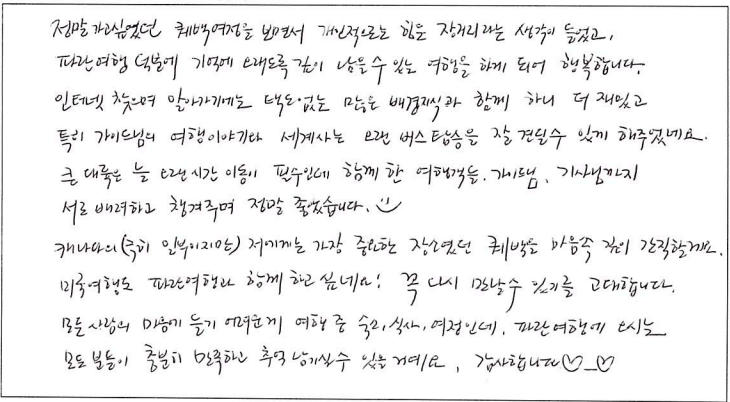 정말 가고싶었던 퀘백여정을 보면서 개인적으로는 힘든 장거리라는 생각이 들었고,
파란여행 덕분에 기억에 오래도록 깊이 남을수 있는 여행을 하게 되어 행복합니다.
인터넷 찾으며 알아가기에는 택도없는 많은 배경지식과 함께 하니 더 재밌고
특히 가이드님의 여행이야기와 세계사는 오랜 버스탑승을 잘 견딜수 있게 해주였네요.
큰 대륙은 늘 오랜시간 이동이 필수인데 함께 한 여행객들, 가이드님, 기사님까지
서로 배려하고 챙겨주며 정말 좋았습니다.
캐나다의 (극히 일부이지만) 저에게는 가장 중요한 장소였던 퀘백을 마음속 깊이 간직할게요.
미국여행도 파란여행과 함께 하고 싶네요! 꼭 다시 만날수 있기를 고대합니다.
모든 사람의 마음에 들기 어려운게 여행 중 숙소, 식사, 여정인데, 파란여행에 오시는
모든 분들이 충분히 만족하고 추억 남기실수 있을거예요, 감사합니다♡_♡